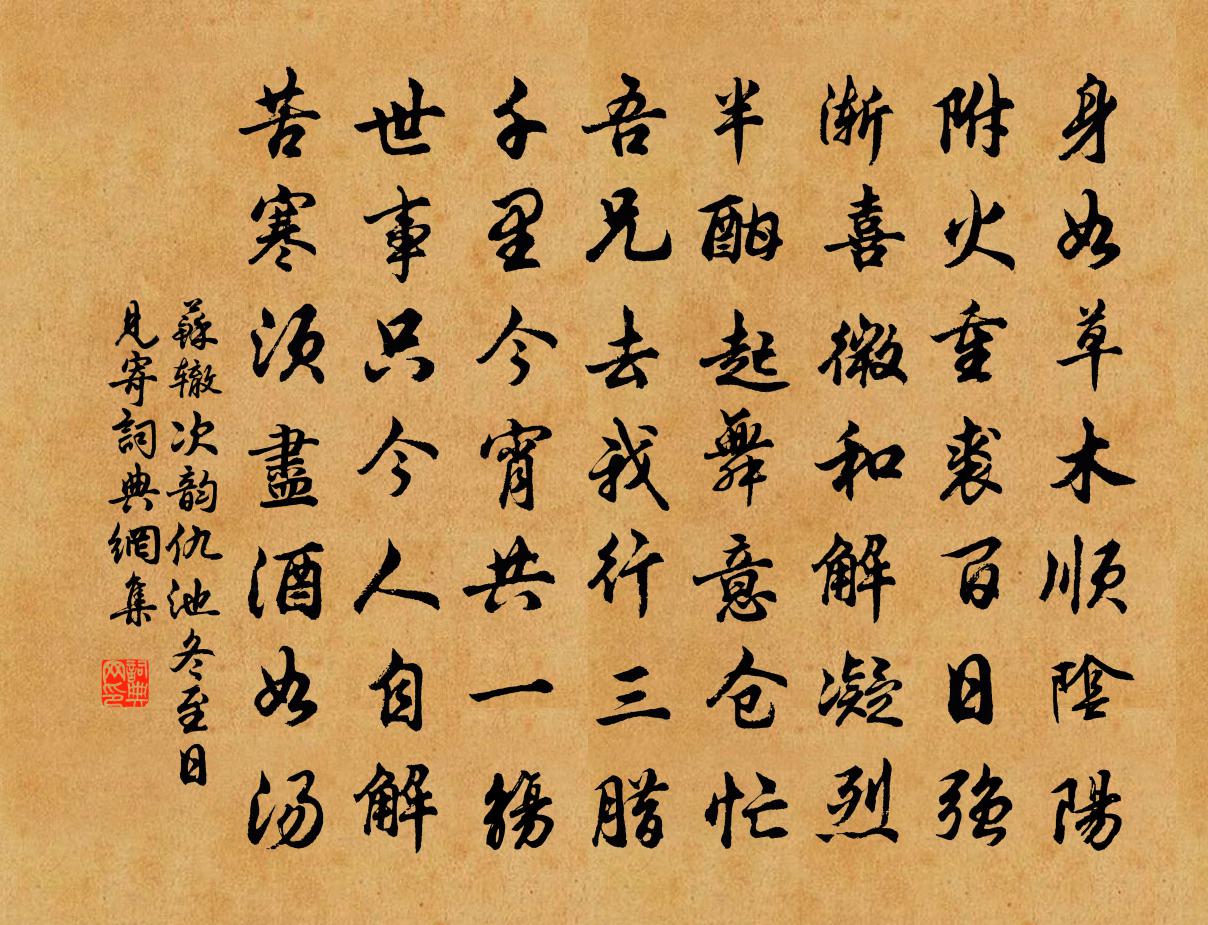 身如草木順陰陽
附火重裘百日強
漸喜微和解凝烈
半酣起舞意仓忙
吾兄去我行三腊
千里今宵共一觴
世事只今人自解
苦寒須盡酒如汤
蘇辙次韵仇池冬至日
見寄詞典網集
詞典
网印